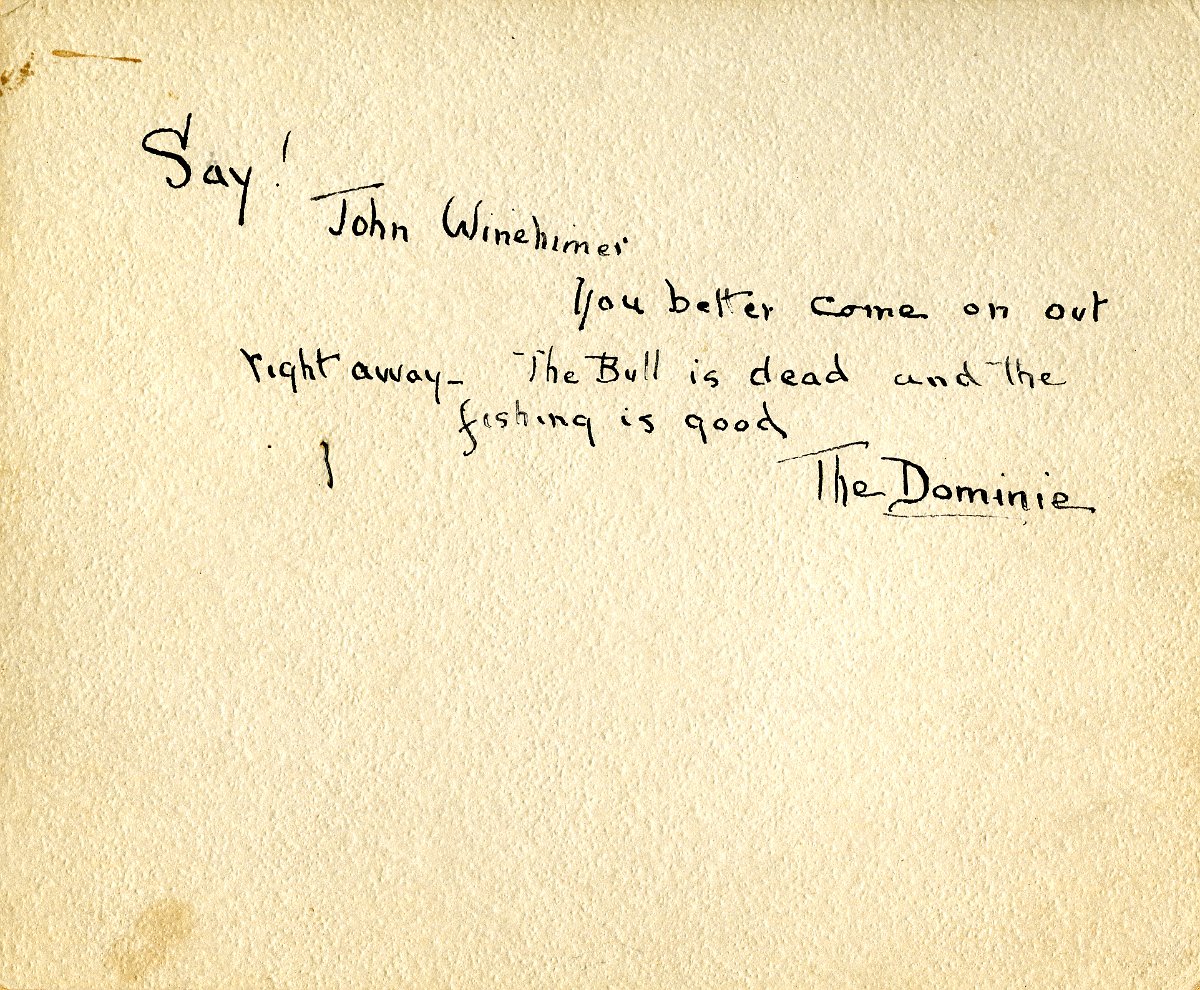 Say!
John Winehimer
You better come on out
right away- The Bull is dead and the
fishing is good
The Dominie